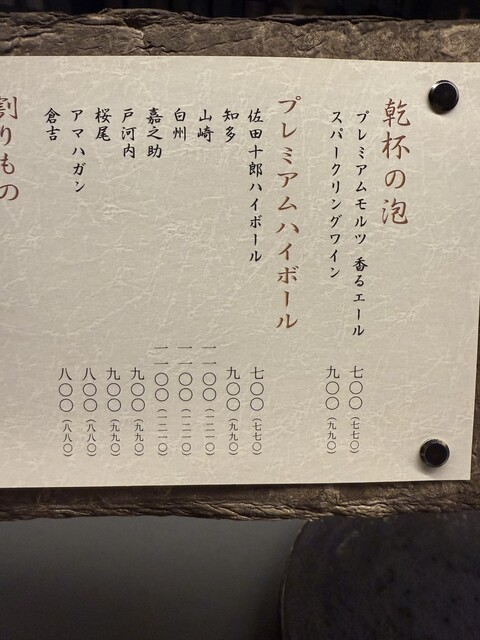 乾杯の泡
プレミアムモルツ 香るエール 七〇〇（七七〇）
スパークリングワイン 九〇〇（九九〇）
プレミアムハイボール
佐田十郎ハイボール 七〇〇（七七〇）
知多 九〇〇（九九〇）
山崎 一一〇〇（一二一〇）
白州 一一〇〇（一二一〇）
嘉之助 一一〇〇（一二一〇）
戸河内 九〇〇（九九〇）
桜尾 九〇〇（九九〇）
アマハガン 八〇〇（八八〇）
倉吉 八〇〇（八八〇）
割りもの